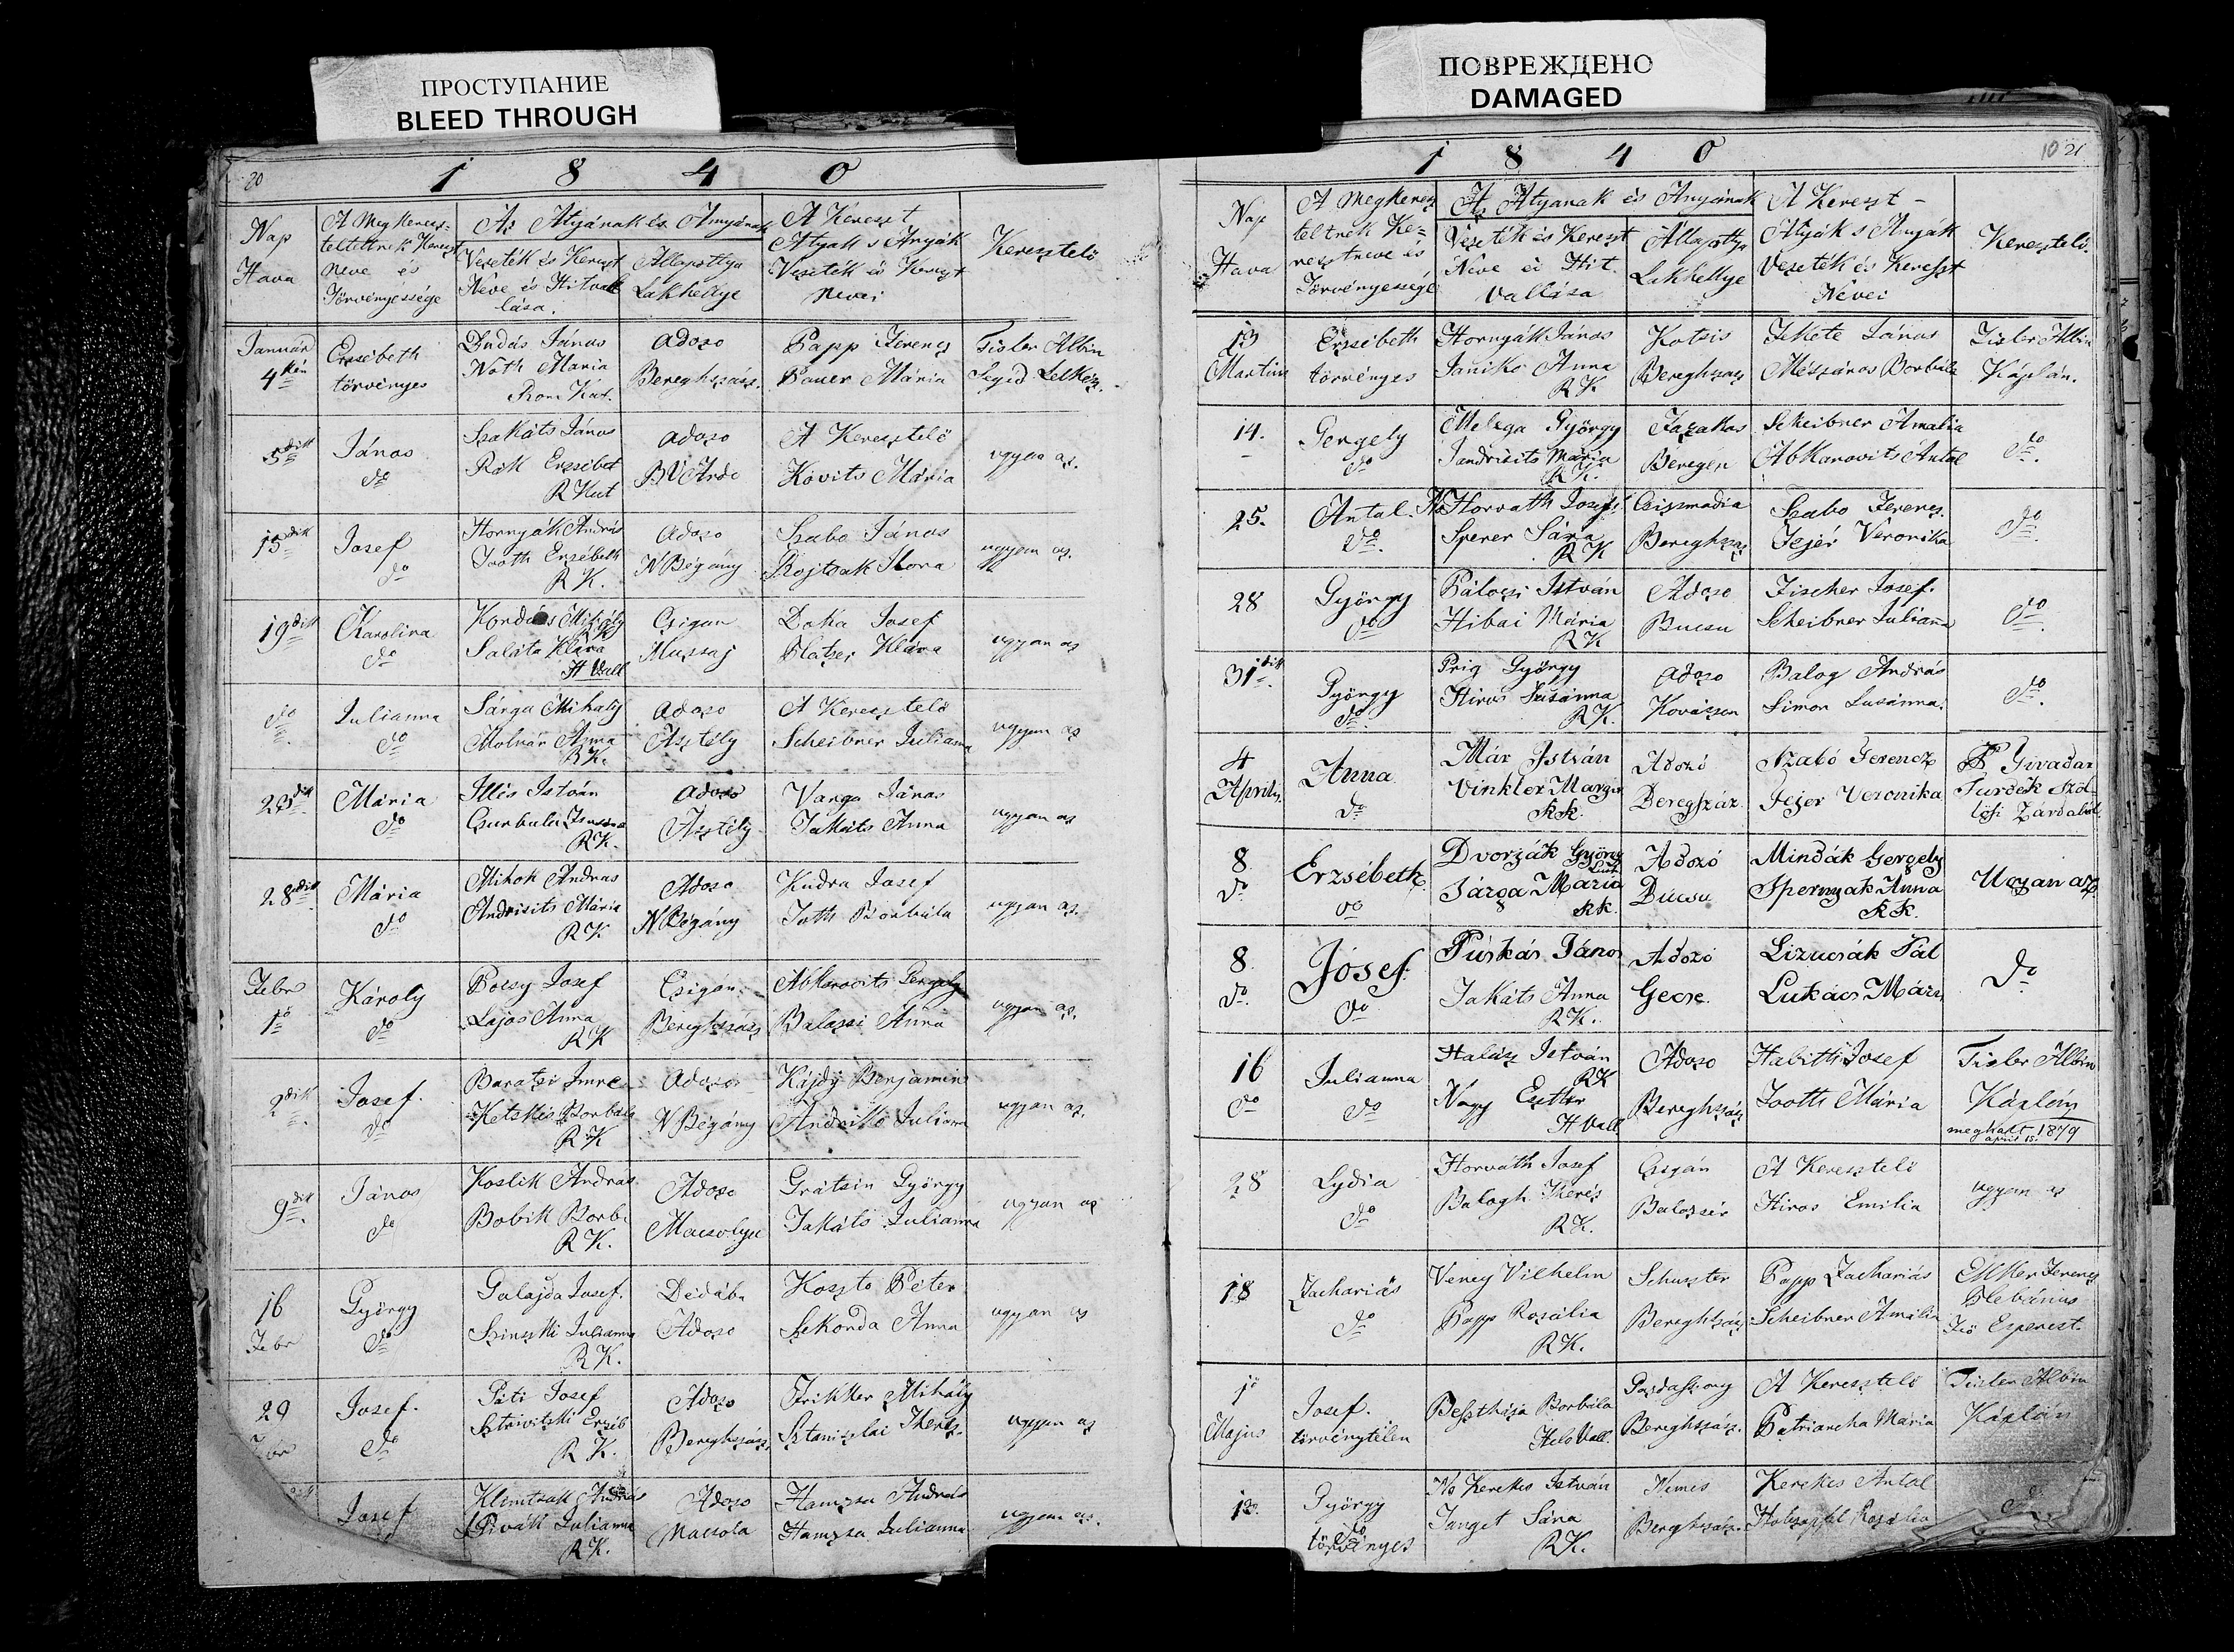 ПРОСТУПАНИЕ
BLEED THROUGH
20
1 8 4 0
Nap
Hava
A Meg Keresz-
teltettnek Kereszt
neve és
Törvényessége
Az Atyának és Anyának
Vezeték és Kereszt
Neve és Hitval
lása.
Állapottya
Lakhellye
A Kereszt
Atyák s Anyák
Vezeték és Kereszt
Nevei
Keresztelő
Január
4kén
Erzsébeth
törvényes
Dudás János
Noth Maria
Rom Kat.
adozo
Bereghszász.
Papp Ferencz
Bauer Mária
Tisler Albin
Segéd Lelkész.
5dik
János
do
Szakáts János
Rák Erzsébet
R Kat
adozo
BVArdo
A Keresztelö
Kovits Mária
ugyan az.
15dik
Josef
do
Hornyák András
Tooth Erzsébeth
R K.
adozo
N Bégány
Szabo János
Rojtsak Ilona
ugyan az.
19dik
Karolina
do
Kordás Mihály
RK
Saláta Klára
H Vall
Czigan
Muzsaj
Daka Josef
Platser Klára
ugyan az
do
Julianna
do
Sárga Mihaly
Molnár Anna
RK.
adozo
Asztély
A Keresztelö
Scheibner Julianna
ugyan az
Mária
do
Illés István
RK.
adozo
Asztély
Varga János
Takáts Anna
ugyan az
28dik
Mária
do
Mihok Andras
Andrisits Mária
RK
Adozo
N Bégány
Kudra Josef
Toth Borbála
ugyan az.
Febr
1ö
Károly
do
Bocsy Josef
Lajos Anna
RK
Czigán
Bereghszász
Abkarovits Gergely
Balassi Anna
ugyan az.
2dik
Josef.
do
Baratsi Imre
Ketskés Borbala
RK
Adozo
N Bégány
Kájdy Benjamin
Andrikó Julianna
ugyan az.
9dik
János
do
Koslik András
Bobik Borb.
RK.
Adozo
Macsolya
Grátsin György
Takáts Julianna
ugyan az
16
Febr
György
do
Galajda Josef.
Szinszki Julianna
RK.
Dédába
Adozo
Koszto Péter
Szekonda Anna
ugyan az
29
Febr
Josef.
do
Páti Josef
Sztrivitzki Erzséb
RK.
Adozo
Bereghszász
Frikker Mihály
Sztaniszlai Therés.
ugyan az
Josef
Klimtsak András
Spivák Julianna
RK.
Adozo
Macsola
Hamzsa András
Hamzsa Julianna
ugyan az.
ПОВРЕЖДЕНО
DAMAGED
10 21
1 8 4 0
Nap
Hava
A Megkeresz
teltnek Ke-
resztneve és
Törvényessége
Az Atyanak és Anyának
Vezeték és Kereszt
Neve és Hit.
Vallása
Állapottya
Lakhellye
A Kereszt-
Atyák s Anyák
Vezeték és Kereszt
Nevei
Keresztelö.
13
Martius
Erzsébeth
törvényes
Hornyák János
Janiko Anna
RK
Kotsis
Bereghszasz
Fekete János
Mészáros Borbála
Tisler Albin
Káplán.
14.
Gergely
do
Melega György
Jandrisits Mária
RK.
Fazakas
Beregen
Scheibner Amalia
Abkarovits Antal
do.
25.
Antal.
do.
Ns Horvath Josef.
Sperer Sára
RK
Csiszmadia
Bereghszasz
Szabo Ferencz.
Fejér Veronika
do.
28
György
do
Pálocsi István
Hibai Mária
RK
Adozo
Bucsu
Fischer Josef.
Scheibner Julianna
do.
31dik.
György
do.
Prig György
Hiros Susánna
RK.
adozo
Kovászon
Balog András
Simon Susánna.
do.
4
Aprily.
Anna
do
Már István
Vinkler Margit
RK.
Adozó
Beregszáz.
Szabó Ferencz
Fejer Veronika
P Tivadar
Turdek Szöl-
lősi Zárdabúl.
8
do.
Erzsébeth.
do
Dvorzák György
Luth
Sárga Maria
RK.
Adozó
Bucsu
Mindák Gergely
Spernyak Anna
RK.
Ugyan az
8.
do.
Jósef.
do
Púskás János
Takáts Anna
RK.
Adozó
Gecse.
Lizucsák Pál
Lukács Mária
do
16
do
Julianna
do
Halász István
RK
Nagy Eszther
H Vall.
Adozo
Bereghszász
Habitth Josef
Tooth Mária
Tisler Albin
Káplán
meghalt 1879
april 15.
28
Lydia
do
Horváth Josef
Balogh Therés
RK.
Czigán
Balazsér
A Keresztelö
Hiros Emilia
ugyan az
18
Zachariás
do
Veney Vilhelm
Papp Rosália
RK.
Schuszter
Bereghszász
Papp Zachariás
Scheibner Amália
Ekker Ferencz
Plébánus
Fö Esperest.
1ö
Majus
Josef.
törvénytélen
Borbála
Helv Vall.
Bereghszász.
A Keresztelö
Patriarcha Maria
Tisler Albin
Káplán
György
do
törvényes
Ns Kerekes István
Tanget Sára
RK.
Nemes
Bereghszász.
Kerekes Antal
Holczapfel Rozália
do